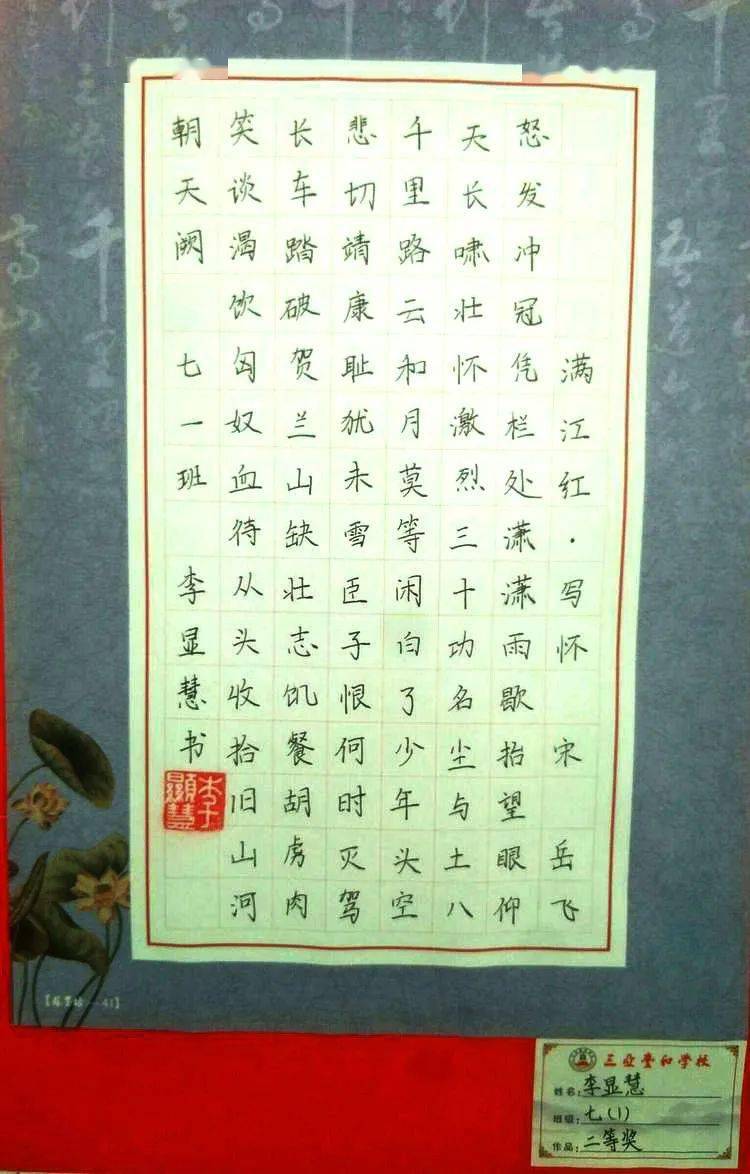 满江红·写怀 宋 岳飞
怒发冲冠凭栏处潇潇雨歇抬望眼仰
天长啸壮怀激烈三十功名尘与土八
千里路云和月莫等闲白了少年头空
悲切靖康耻犹未雪臣子恨何时灭驾
长车踏破贺兰山缺壮志饥餐胡虏肉
笑谈渴饮匈奴血待从头收拾旧山河
朝天阙 七一班 李显慧书
李顯慧
三亚丰和学校
姓名:李显慧
班级:七(1)
作品:二等奖